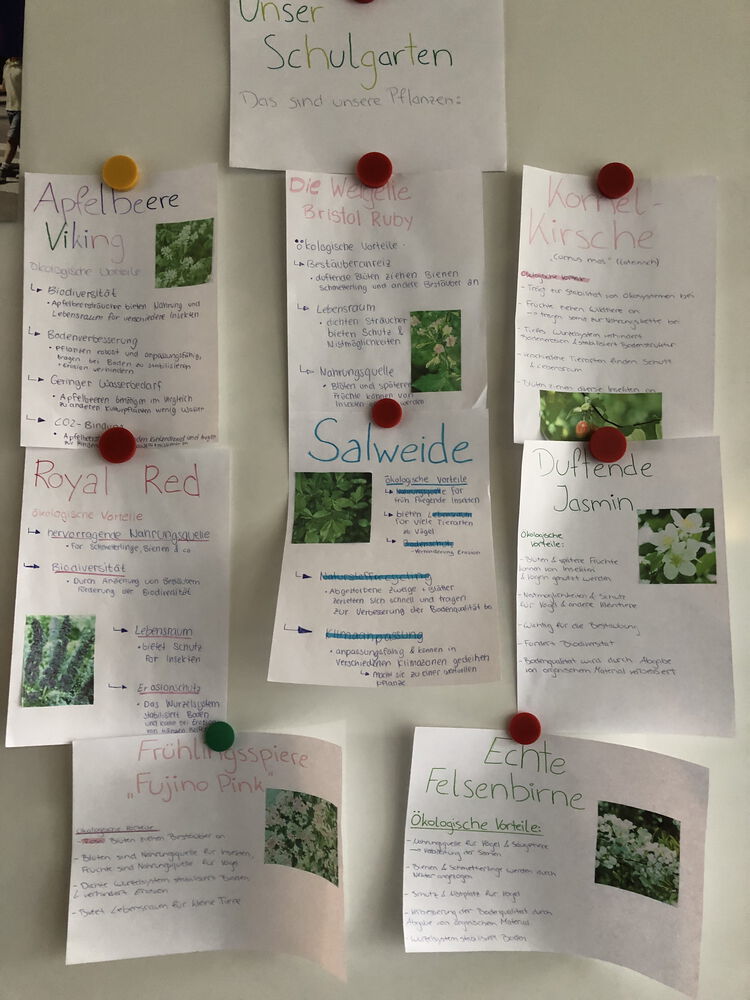 Unser
Schulgarten
Das sind unsere Pflanzen:
Apfelbeere
Viking
ökologische Vorteile
↳ Biodiversität
• Apfelbeersträucher bieten Nahrung und
Lebensraum für verschiedene Insekten
↳ Bodenverbesserung
• Pflanzen robust und anpassungsfähig,
tragen bei Boden zu stabilisieren
+ Erosion verhindern
↳ Geringer Wasserbedarf
• Apfelbeeren benötigen im Vergleich
zu anderen Kulturpflanzen wenig Wasser
↳ CO2-Bindung
Die Weigelie
Bristol Ruby
ökologische Vorteile:
↳ Bestäuberanreiz
• duftende Blüten ziehen Bienen
Schmetterling und andere Bestäuber an
↳ Lebensraum
• dichten Sträucher
bieten Schutz &
Nistmöglichkeiten
↳ Nahrungsquelle
• Blüten und spätere
Früchte können von
Insekten werden
Kornel-
Kirsche
"Cornus mas" (lateinisch)
ökologische Vorteile
- Trägt zur Stabilität von Ökosystemen bei
- Früchte ziehen Wildtiere an
→ tragen somit zur Nahrungskette bei
- Tiefes Wurzelsystem verhindert
Bodenerosion & stabilisiert Bodenstruktur
- verschiedene Tierarten finden Schutz
& Lebensraum
- Blüten ziehen diverse Insekten an
Royal Red
ökologische Vorteile
↳ hervorragende Nahrungsquelle
• für Schmetterlinge, Bienen & co
↳ Biodiversität
• Durch Anziehung von Bestäubern
Förderung der Biodiversität
↳ Lebensraum
• bietet Schutz
für Insekten
↳ Erosionschutz
• Das Wurzelsystem
stabilisiert Boden
und kann bei
Salweide
ökologische Vorteile
↳ Nahrungsquelle für
früh fliegende Insekten
↳ bieten Lebensraum
für viele Tierarten
zb Vögel
↳ Bodenschutz
- Verminderung Erosion
↳ Naturstoffrecycling
• Abgestorbene Zweige + Blätter
zersetzen sich schnell und tragen
zur Verbesserung der Bodenqualität bei
↳ Klimaanpassung
• anpassungsfähig & können in
verschiedenen Klimazonen gedeihen
↳ macht sie zu einer wertvollen
Pflanze
Duftende
Jasmin
Ökologische
Vorteile:
- Blüten & spätere Früchte
können von Insekten
& Vögeln genutzt werden
- Nistmöglichkeiten & Schutz
für Vögel & andere Kleintiere
- Wichtig für die Bestäubung
- Fördert Biodiversität
- Bodenqualität wird durch Abgabe
von organischem Material verbessert
Frühlingsspiere
"Fujino Pink"
Ökologische Vorteile
- Blüten ziehen Bestäuber an
- Blüten sind Nahrungsquelle für Insekten,
Früchte sind Nahrungsquelle für Vögel
- Dichte Wurzelsystem stabilisiert Boden
& verhindert Erosion
- Bietet Lebensraum für kleine Tiere
Echte
Felsenbirne
Ökologische Vorteile:
- Nahrungsquelle für Vögel & Säugetiere
→ Verbreitung der Samen
- Bienen & Schmetterlinge werden durch
Nektar angezogen
- Schutz & Nistplatz für Vögel
- Verbesserung der Bodenqualität durch
Abgabe von organischem Material
- Wurzelsystem stabilisiert Boden